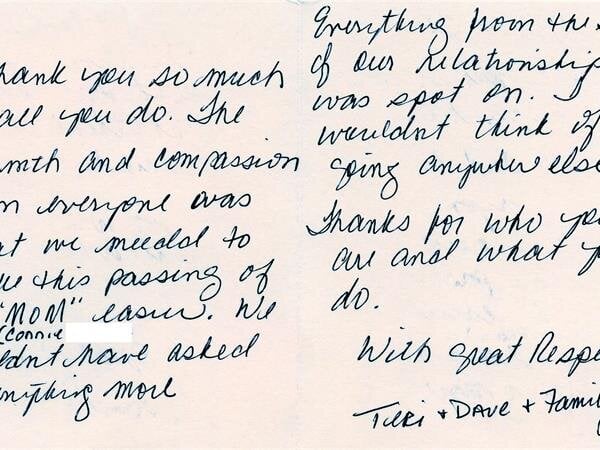 hank you so much
all you do. The
mth and compassion
m everyone was
at we needed to
this passing of
"MOM" easier. We
(Connie
ldnt have asked
nything more
Everything from the
of our relationship
was spot on. I
wouldnt think of
going anywhere else
Thanks for who you
are and what y
do.
With great Respe
Terri + Dave + Famil